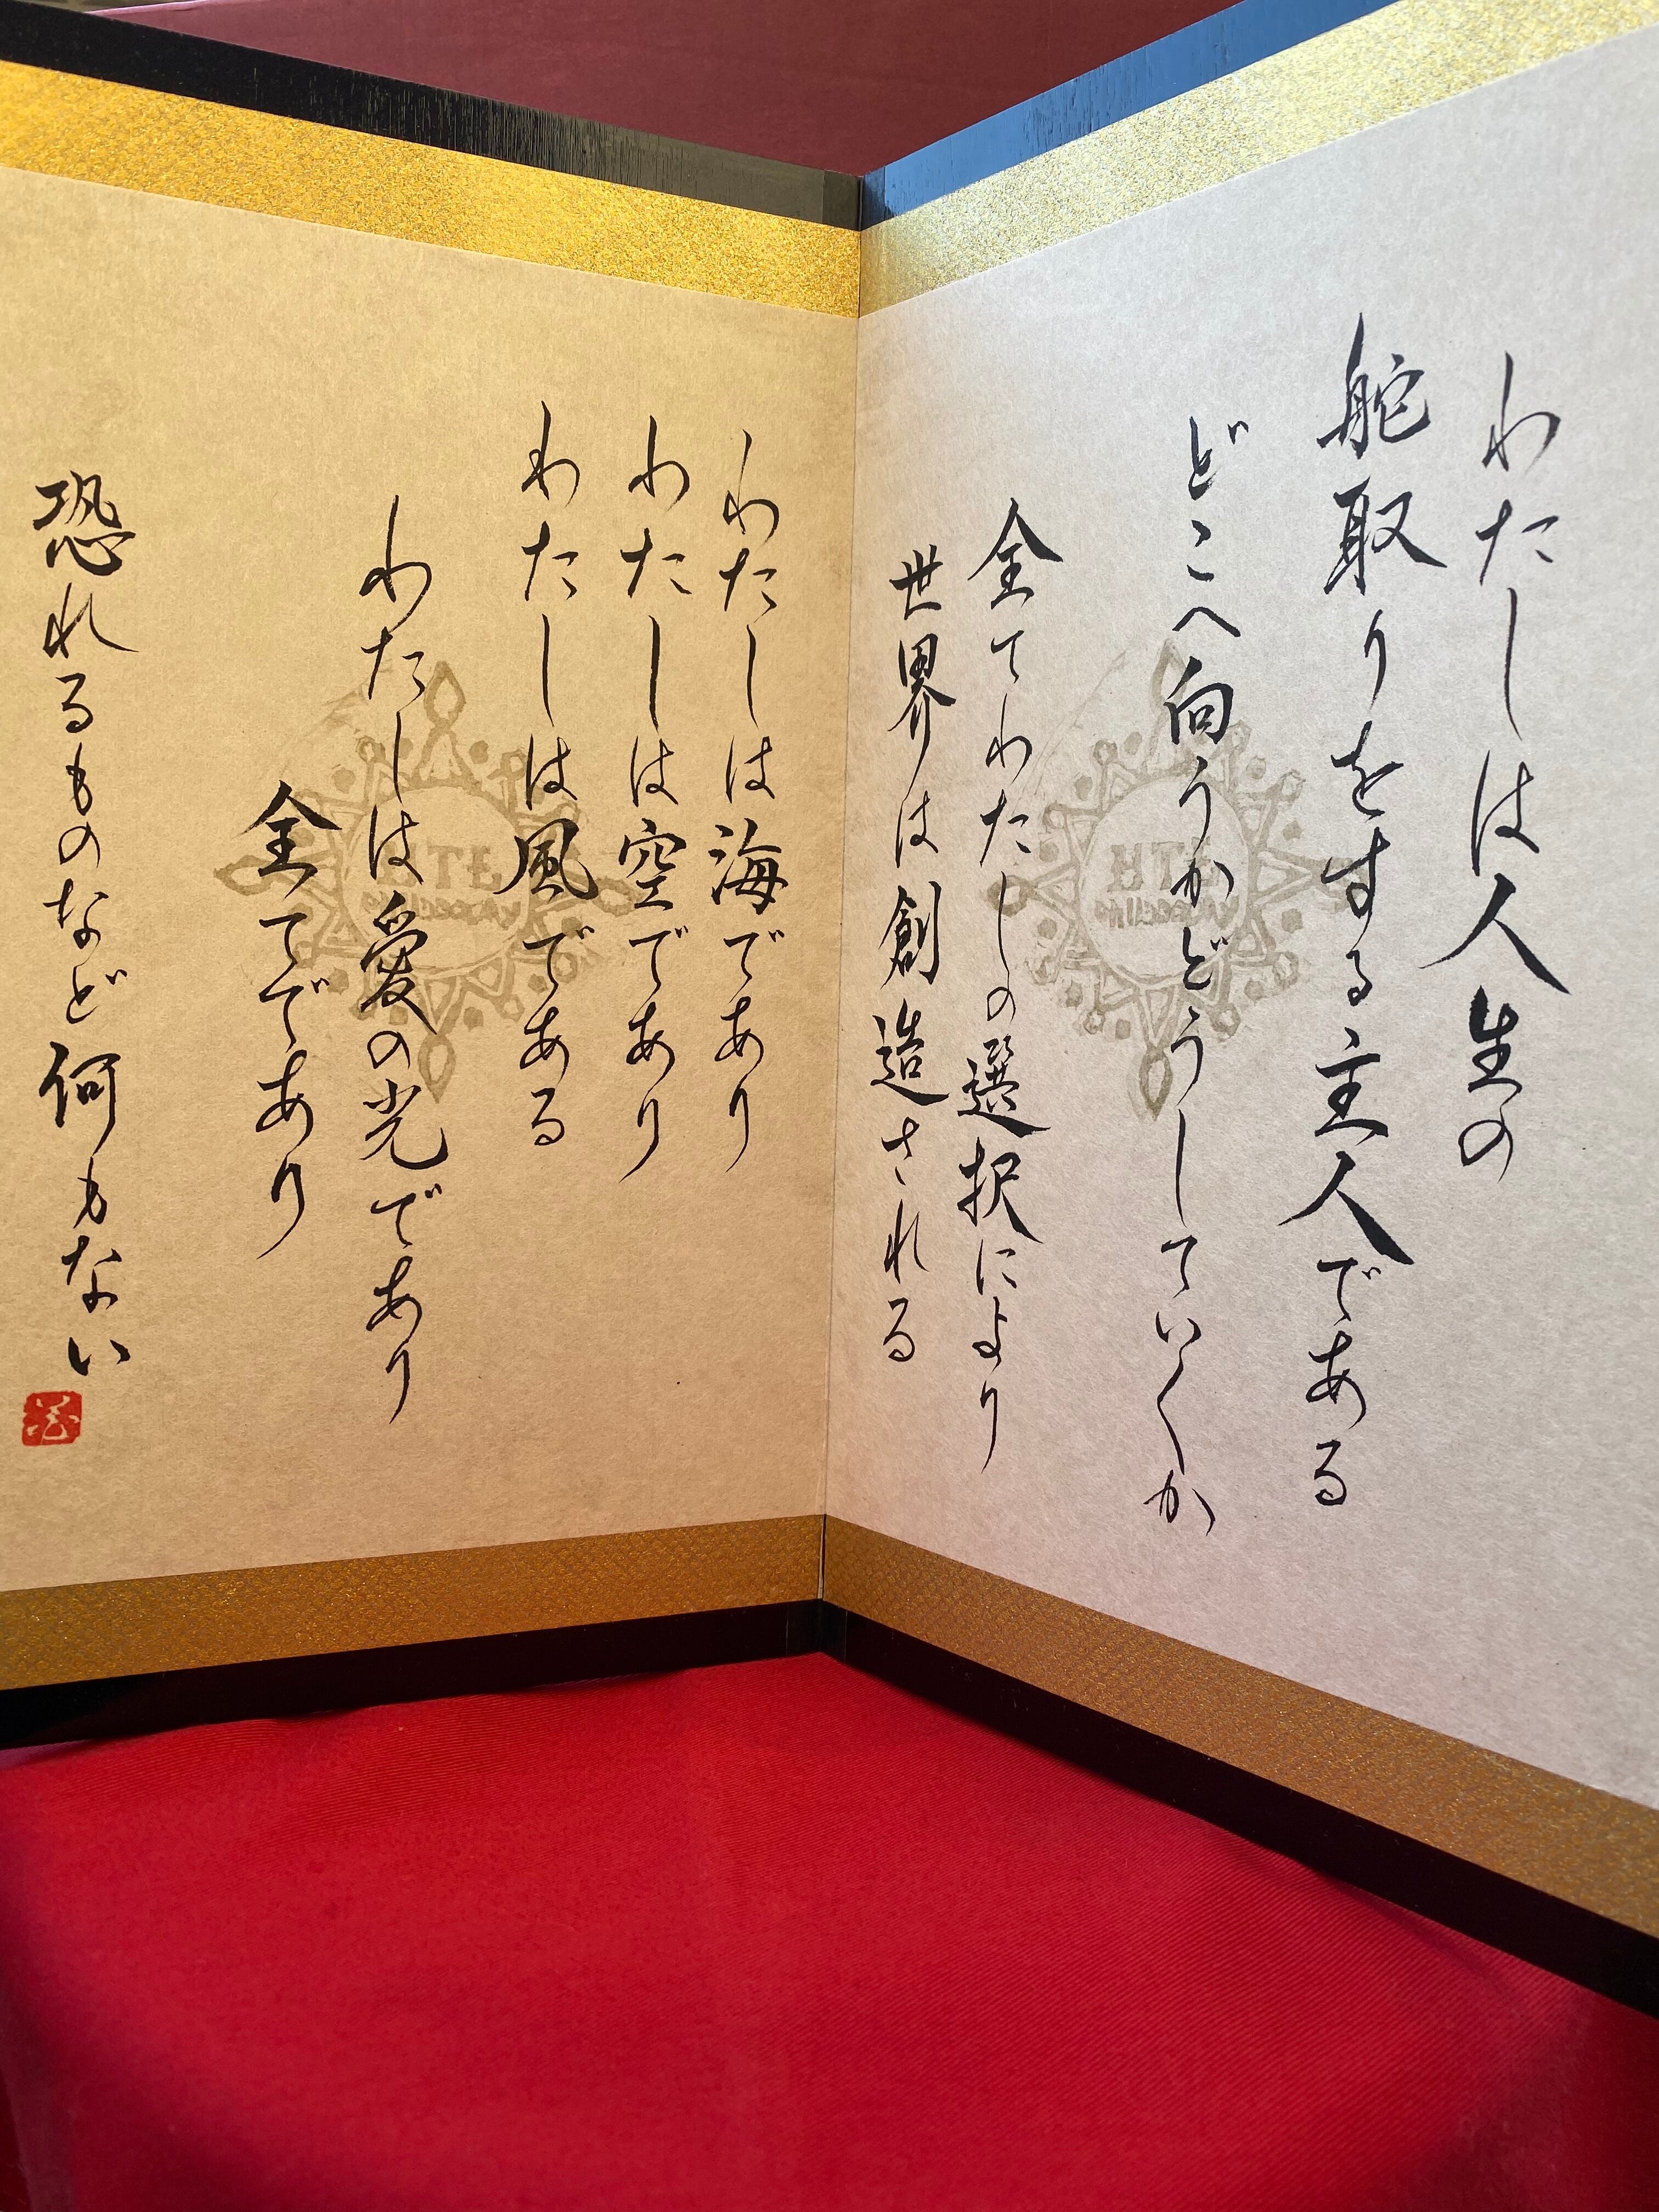 わたしは人生の
舵取りをする主人である
どこへ向うかどうしていくか
全てわたしの選択により
世界は創造される
わたしは海であり
わたしは空であり
わたしは風である
わたしは愛の光であり
全てであり
恐れるものなど何もない